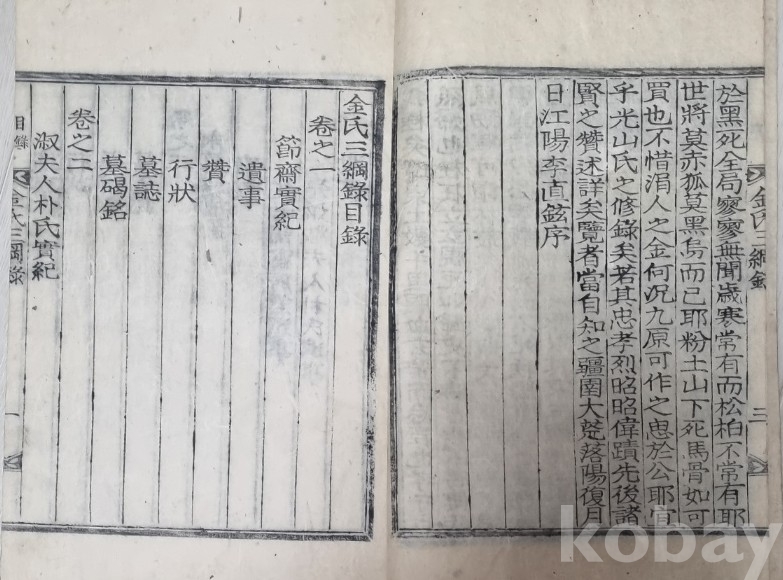 於黑死全局寥寥無聞歲寒常有而松柏不常有耶
世將莫赤狐莫黑烏而已耶粉土山下死馬骨如可
買也不惜涓人之金何況九原可作之忠於公耶宜
乎光山氏之修錄矣若其忠孝烈昭昭偉蹟先後諸
賢之贊述詳矣覽者當自知之疆南大荒落陽復月
日江陽李直鉉序
金氏三綱錄
三
金氏三綱錄目錄
卷之一
節齋實紀
遺事
贊
行狀
墓誌
墓碣銘
卷之二
淑夫人朴氏實紀
目錄
金氏三綱錄
一
kobay